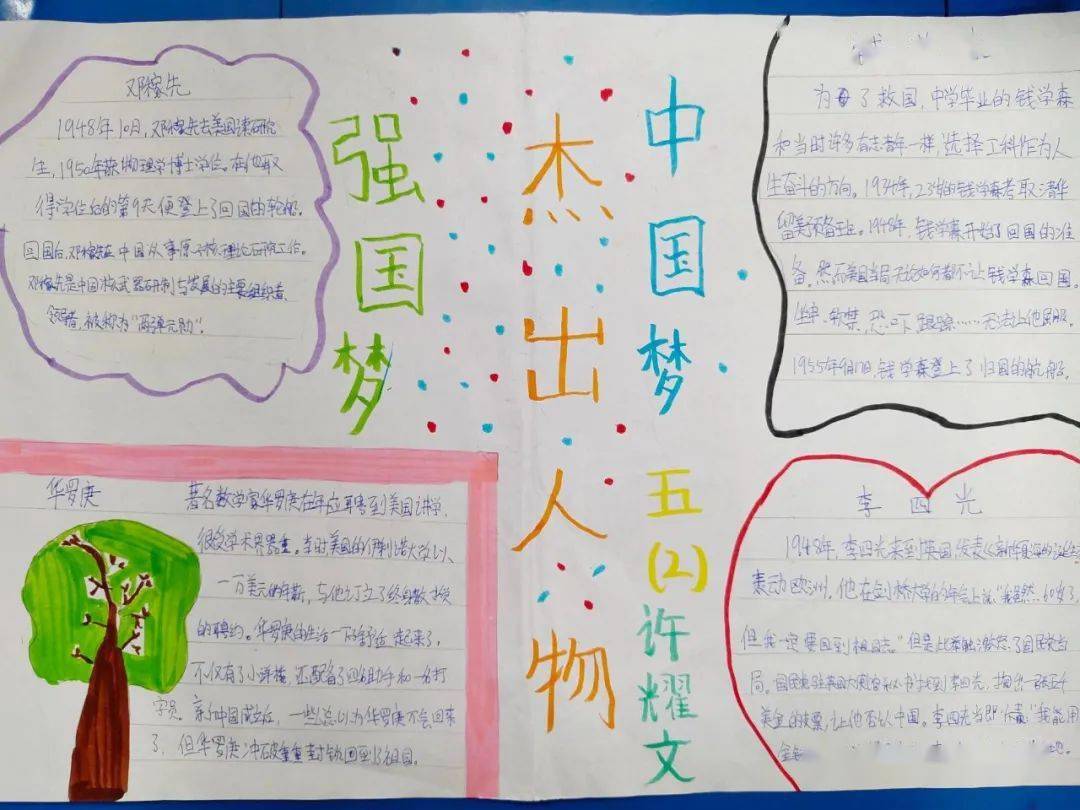 中国梦
杰出人物
强国梦
五(2)许耀文
邓稼先
1948年10月,邓稼先去美国读研究
生,1950年获物理学博士学位。在他取
得学位后的第9天便登上了回国的轮船。
回国后,邓稼先在中国从事原子核理论研究工作。
邓稼先是中国核武器研制与发展的主要组织者、
领导者,被称为“两弹元勋”。
为了救国,中学毕业的钱学森
和当时许多有志青年一样,选择工科作为人
生奋斗的方向。1934年,23岁的钱学森考取清华
留美预备班。1948年,钱学森开始了回国的准
备。然而美国当局无论如何都不让钱学森回国。
坐牢、软禁、恐吓、跟踪……无法让他屈服。
1955年9月17日,钱学森登上了归国的航船。
华罗庚
著名数学家华罗庚在年应聘到美国讲学,
很受学术界器重。当时美国的伊利诺大学以
一万美元的年薪,与他订立了终身教授
的聘约。华罗庚的生活一下子舒适起来了,
不仅有了小洋楼,还配备了四名助手和一名打
字员。新中国成立后,一些人总以为华罗庚不会回来
了,但华罗庚冲破重重封锁回到了祖国。
李四光
1948年,李四光来到英国发表《新华夏海的诞生
轰动欧洲。他在剑桥大学的年会上说:“我虽然60岁了,
但我一定要回到祖国去。”但是此举触怒了国民党当
局。国民党驻英国大使
美金的支票,让他否认中国。李四光当即“我能用